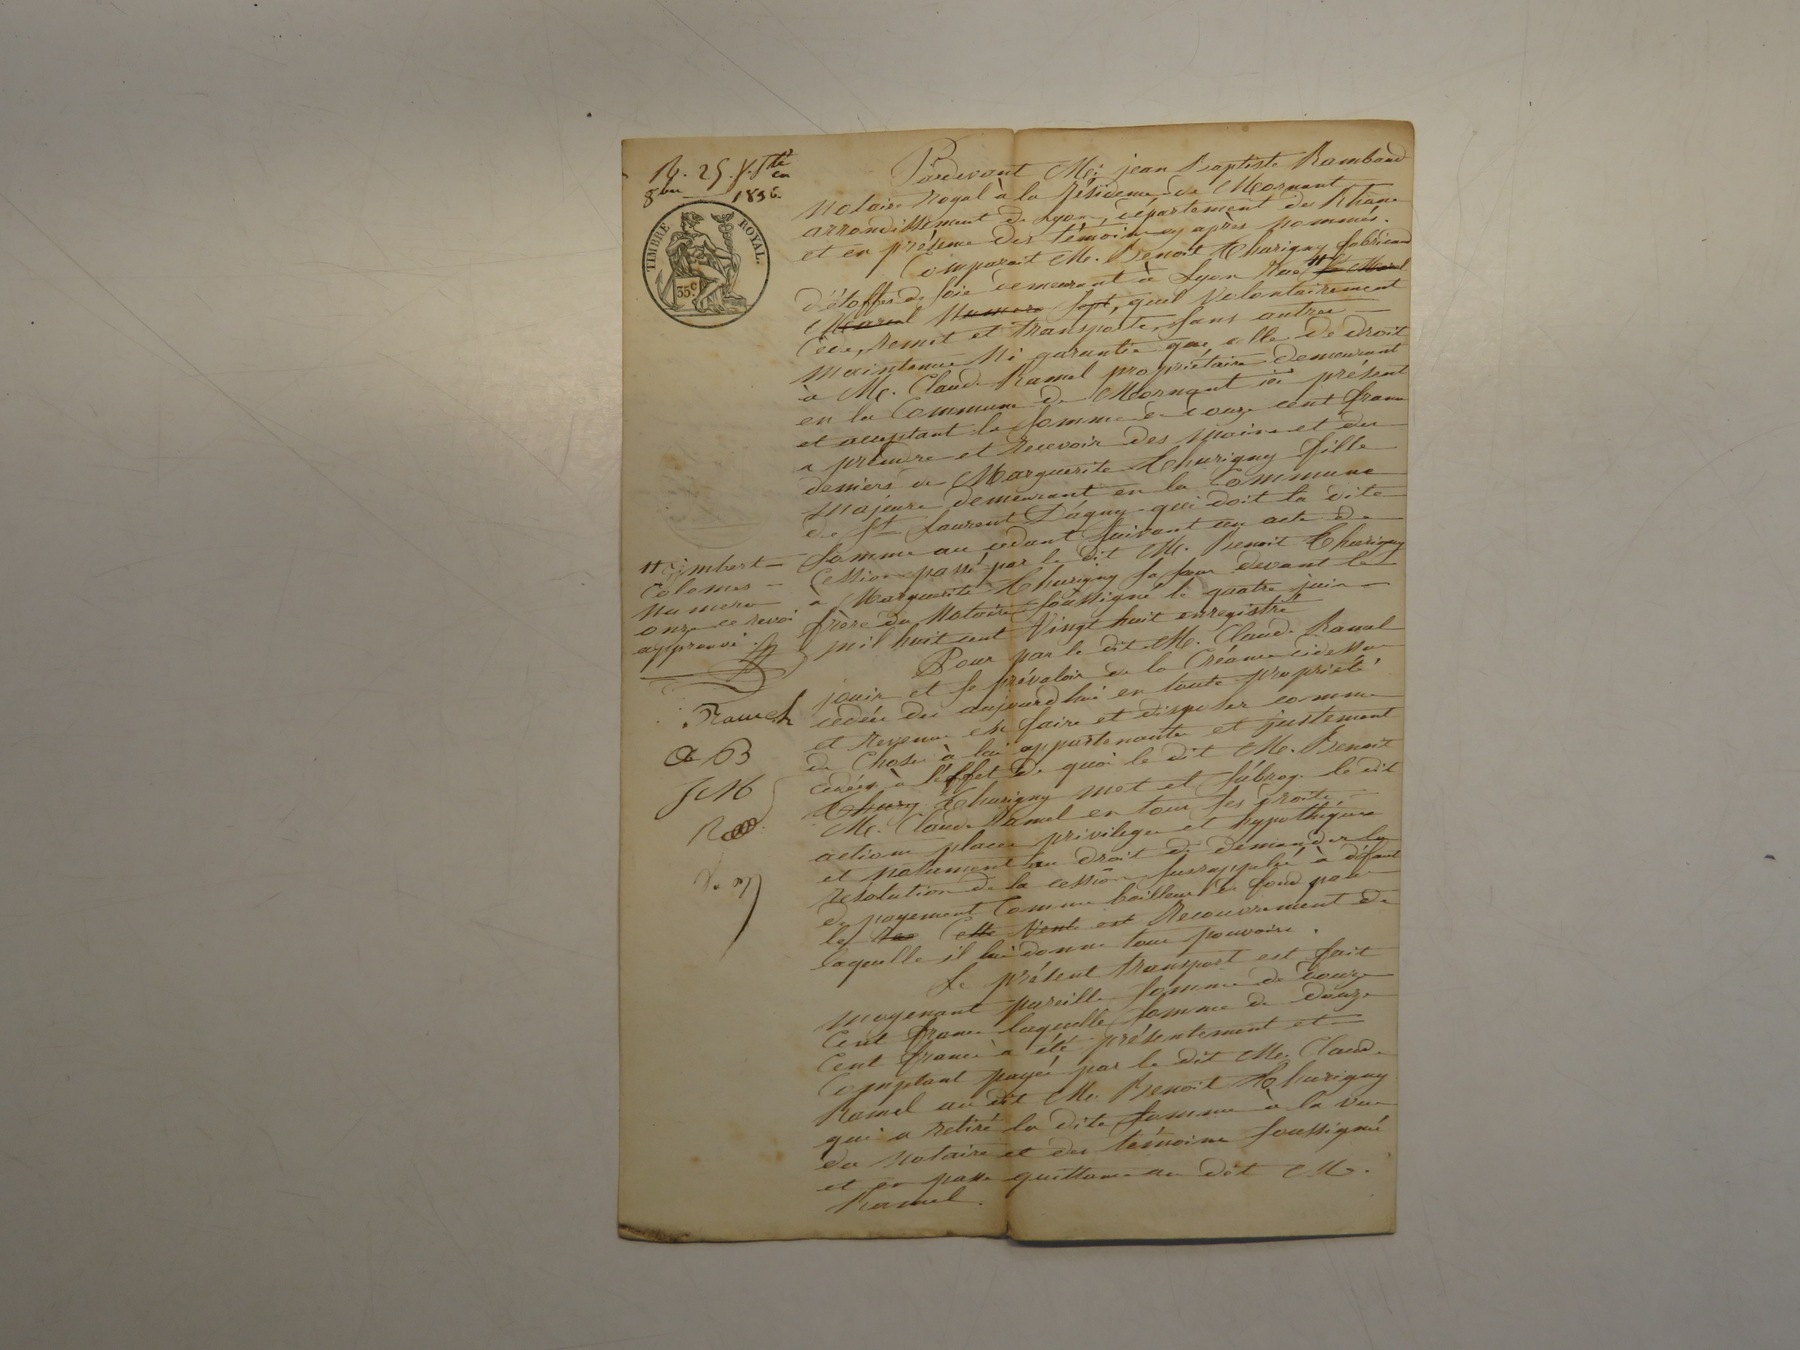 1836
TIMBRE ROYAL.
35c
Pardevant Me. jean Baptiste Rambaud
Notaire Royal à la Résidence de Mornant
arrondissement de Lyon, département du Rhone
et en présence des témoins cy après nommés.
Comparait M. Benoit Thurigny fabricant
d'étoffes de soie demeurant à Lyon Rue
Marcel Numero Sept, quel Volontairement
Cede, remet et transporte, sans autre
Maintenue Ni garantie que celle de droit
à M. Claude Ramel propriétaire demeurant
en la Commune de Mornant ici présent
et acceptant la somme de douze cent francs
a prendre et recevoir des mains et des
deniers de Marguerite Thurigny fille
Majeure demeurant en la Commune
de St Laurent D'agny qui doit la dite
somme au cedant suivant un acte de
Cession passé par le dit M. Benoit Thurigny
à Marguerite Thurigny sa sœur devant le
frère du Notaire soussigné le quatre juin
mil huit cent Vingt huit enregistré
Pour par le dit M. Claude Ramel
jouir et se prévaloir de la Créance cidessus
cedée des aujourd'hui en toute propriété
et Revenu en faire et disposer comme
de Chose à lui appartenante et justement
cedée à l'effet de quoi le dit M. Benoit
Thurigny met et subroge le dit
M. Claude Ramel en tous ses droits
actions places privileges et hypothèques
et notamment au droit de demander la
résolution de la cession susrappelée à défaut
de payement Comme bailleur de fond pour
le Cette Vente est Recouvrement de
laquelle il lui donne tous pouvoirs.
Le présent transport est fait
moyenant pareille somme de douze
Cent francs laquelle somme de douze
Cent francs à été présentement et
Comptant payée par le dit M. Claude
Ramel au dit M. Benoit Thurigny
qui a retiré la dite somme à la vue
du Notaire et des témoins soussignés
et en passe quittance au dit M.
Ramel.
Imbert
Colomes
Numero
onze ce renvoi
approuvé
Franch
B
JM